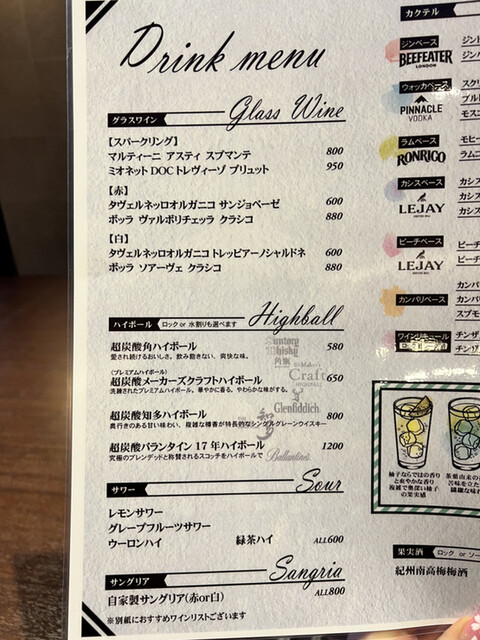 Drink menu
グラスワイン Glass Wine
【スパークリング】
マルティーニ アスティ スプマンテ 800
ミオネットDOCトレヴィーゾ ブリュット 950
【赤】
タヴェルネッロオルガニコ サンジョベーゼ 600
ボッラ ヴァルポリチェッラ クラシコ 880
【白】
タヴェルネッロオルガニコ トレッビアーノシャルドネ 600
ボッラ ソアーヴェ クラシコ 880
ハイボール ロック or 水割りも選べます Highball
超炭酸角ハイボール 580
愛され続けるおいしさ。飲み飽きない、爽快な味。
Suntory
Whisky
角瓶
(プレミアムハイボール)
超炭酸メーカーズクラフトハイボール 650
洗練されたプレミアムハイボール。華やかに香る、やわらかな味がする。
Maker's
Craft
HIGHBALL
超炭酸知多ハイボール 800
奥行きのある甘い味わい、複雑な樽香が特長的なシングルグレーンウイスキー
Glenfiddich
知多
超炭酸バランタイン 17年ハイボール 1200
究極のブレンデッドと称賛されるスコッチをハイボールで
Ballantine's
サワー Sour
レモンサワー
グレープフルーツサワー
ウーロンハイ 緑茶ハイ ALL600
サングリア Sangria
自家製サングリア(赤or白) ALL800
※別紙におすすめワインリストございます
カクテル
ジンベース
BEEFEATER
LONDON
ジント
ジン
ウォッカベース
PINNACLE
VODKA
スクリ
ブルド
モスコ
ラムベース
RONRICO
モヒー
ラムコ
カシスベース
LEJAY
カシス
カシス
カシス
ピーチベース
LEJAY
ピーチ
ピーチ
カンパリベース
カンパ
カンパ
スプモ
ワインリキュール
チンザ
チンザ
柚子ならではの香り
と爽やかな香り
複雑で奥深い柚子
の果実感
茶葉由来の
苦味を立た
繊細な味わ
果実酒 ロック or ソー
紀州南高梅梅酒